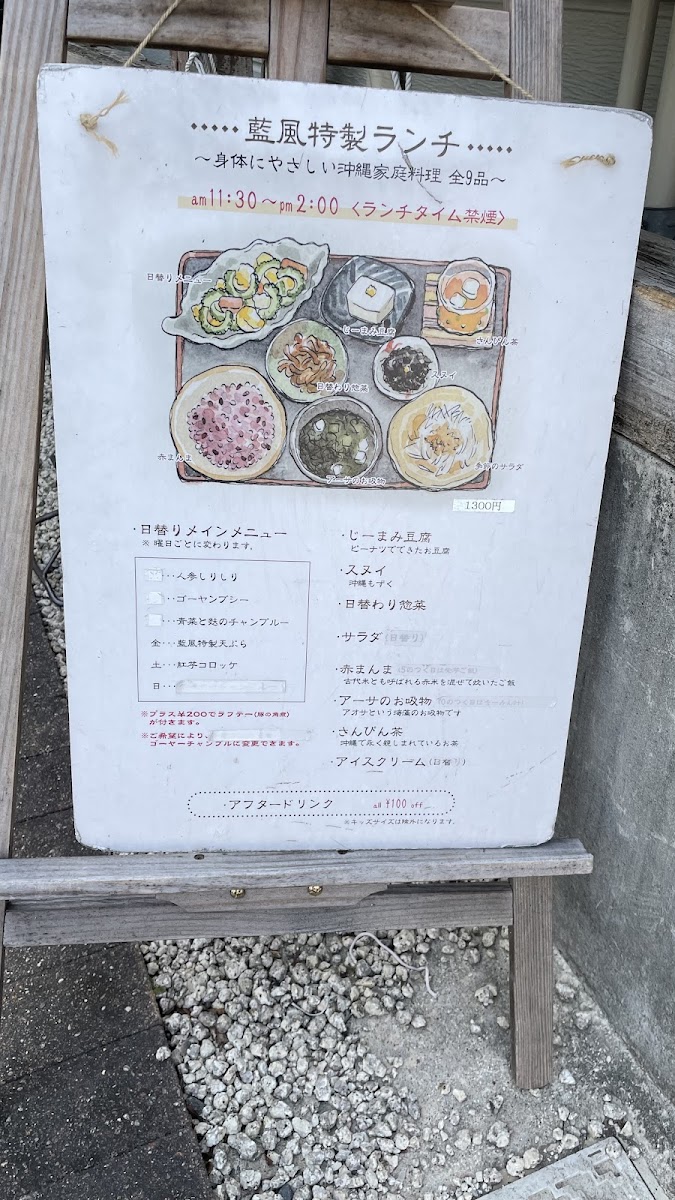 ・・・・・藍風特製ランチ・・・・・
～身体にやさしい沖縄家庭料理 全9品～
am11:30～pm2:00〈ランチタイム禁煙〉
日替りメニュー
じーまみ豆腐
さんぴん茶
日替わり惣菜
スヌイ
赤まんま
アーサのお吸物
季節のサラダ
1300円
・日替りメインメニュー
※ 曜日ごとに変わります。
・・・人参しりしり
・・・ゴーヤンブシー
・・・青菜と麩のチャンプルー
金・・・藍風特製天ぷら
土・・・紅芋コロッケ
日・・・
※プラス¥200でラフテー(豚の角煮)
が付きます。
※ご希望により、
ゴーヤーチャンプルに変更できます。
・じーまみ豆腐
ピーナツでできたお豆腐
・スヌイ
沖縄もずく
・日替わり惣菜
・サラダ(日替り)
・赤まんま
古代米とも呼ばれる赤米を混ぜて炊いたご飯
・アーサのお吸物
アオサという海藻のお吸物です
・さんぴん茶
沖縄で永く親しまれているお茶
・アイスクリーム(日替り)
・アフタードリンク all ¥100 off
※キッズサイズは除外になります。